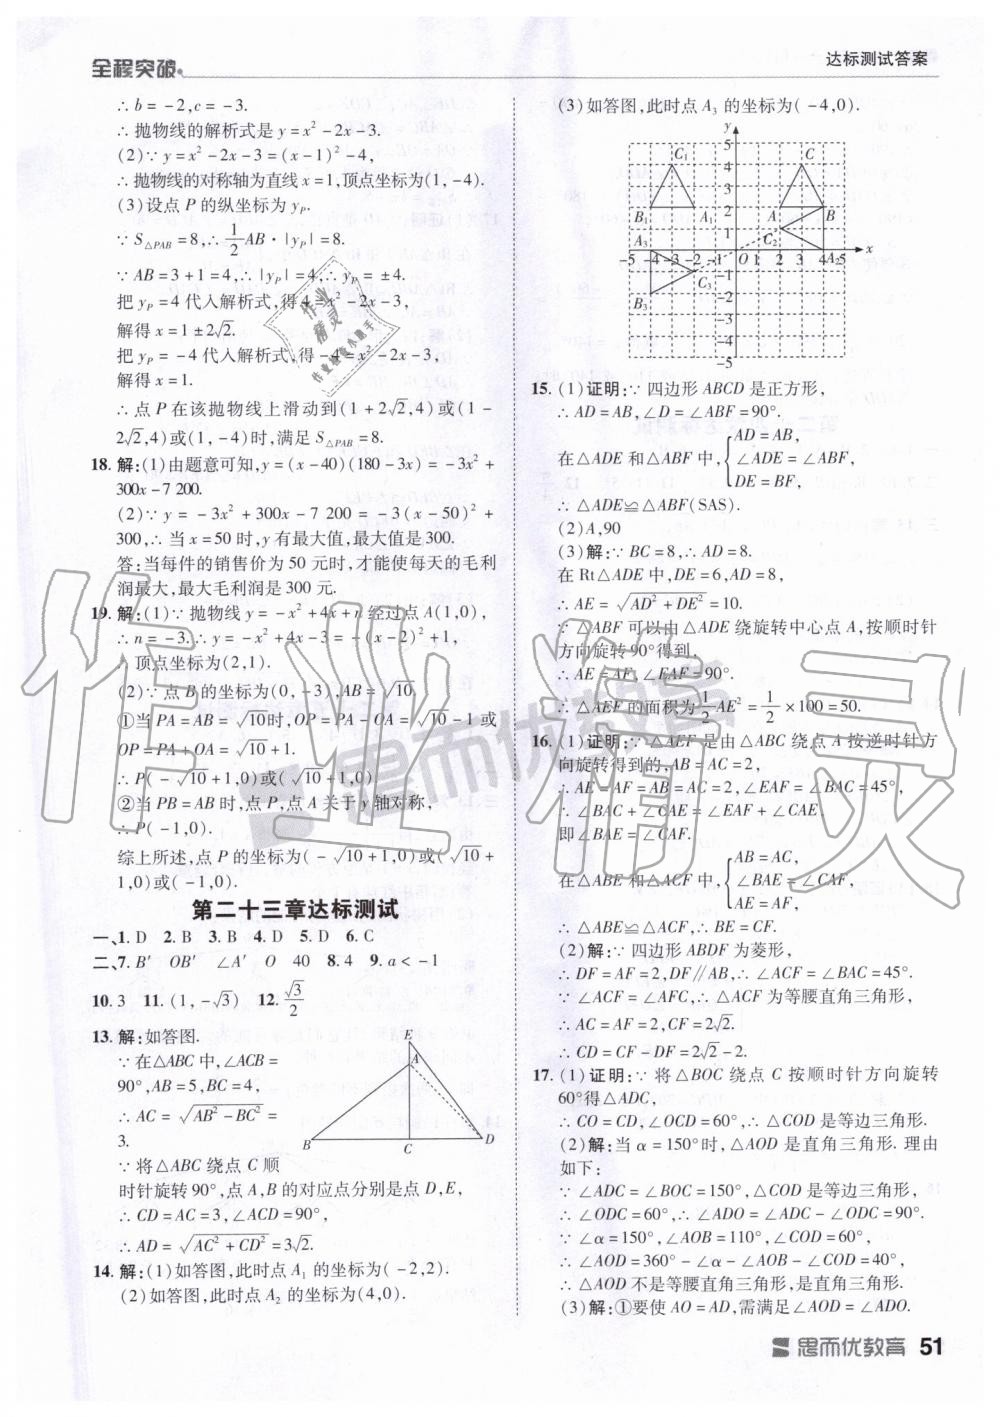 全程突破
达标测试答案
∴b=-2,c=-3.
∴抛物线的解析式是y=x²-2x-3.
(2)∵y=x²-2x-3=(x-1)²-4,
∴抛物线的对称轴为直线x=1,顶点坐标为(1,-4).
(3)设点P的纵坐标为y_P.
∵S△PAB=8,∴1/2AB·|y_P|=8.
∵AB=3+1=4,∴|y_P|=4,∴y_P=±4.
把y_P=4代入解析式,得4=x²-2x-3,
解得x=1±2√2.
把y_P=-4代入解析式,得-4=x²-2x-3,
解得x=1.
∴点P在该抛物线上滑动到(1+2√2,4)或(1-
2√2,4)或(1,-4)时,满足S△PAB=8.
18.解:(1)由题意可知,y=(x-40)(180-3x)=-3x²+
300x-7 200.
(2)∵y=-3x²+300x-7 200=-3(x-50)²+
300,∴当x=50时,y有最大值,最大值是300.
答:当每件的销售价为50元时,才能使每天的毛利
润最大,最大毛利润是300元.
19.解:(1)∵抛物线y=-x²+4x+n经过点A(1,0),
∴n=-3.∴y=-x²+4x-3=-(x-2)²+1,
∴顶点坐标为(2,1).
(2)∵点B的坐标为(0,-3),AB=√10,
①当PA=AB=√10时,OP=PA-OA=√10-1或
OP=PA+OA=√10+1.
∴P(-√10+1,0)或(√10+1,0).
②当PB=AB时,点P,点A关于y轴对称,
∴P(-1,0).
综上所述,点P的坐标为(-√10+1,0)或(√10+
1,0)或(-1,0).
第二十三章达标测试
一、1.D 2.B 3.B 4.D 5.D 6.C
二、7.B′ OB′ ∠A′ O 40 8.4 9.a<-1
10.3 11.(1,-√3) 12.√3/2
13.解:如答图.
∵在△ABC中,∠ACB=
90°,AB=5,BC=4,
∴AC=√(AB²-BC²)=
3.
∵将△ABC绕点C顺
时针旋转90°,点A,B的对应点分别是点D,E,
∴CD=AC=3,∠ACD=90°,
∴AD=√(AC²+CD²)=3√2.
E
A
B
C
D
14.解:(1)如答图,此时点A₁的坐标为(-2,2).
(2)如答图,此时点A₂的坐标为(4,0).
(3)如答图,此时点A₃的坐标为(-4,0).
y
5
C₁ 4 C
3
B₁ A₁ 2 A B
A₃ 1 C₂
-5 -4 -3 -2 -1 O 1 2 3 4 5 x
C₃ -1
B₃ -2
-3
-4
-5
15.(1)证明:∵四边形ABCD是正方形,
∴AD=AB,∠D=∠ABF=90°.
AD=AB,
在△ADE和△ABF中,∠ADE=∠ABF,
DE=BF,
∴△ADE≌△ABF(SAS).
(2)A,90
(3)解:∵BC=8,∴AD=8.
在Rt△ADE中,DE=6,AD=8,
∴AE=√(AD²+DE²)=10.
∵△ABF可以由△ADE绕旋转中心点A,按顺时针
方向旋转90°得到,
∴AE=AF,∠EAF=90°.
∴△AEF的面积为1/2AE²=1/2×100=50.
16.(1)证明:∵△AEF是由△ABC绕点A按逆时针方
向旋转得到的,AB=AC=2,
∴AE=AF=AB=AC=2,∠EAF=∠BAC=45°,
∴∠BAC+∠CAE=∠EAF+∠CAE,
即∠BAE=∠CAF.
AB=AC,
在△ABE和△ACF中,∠BAE=∠CAF,
AE=AF,
∴△ABE≌△ACF,∴BE=CF.
(2)解:∵四边形ABDF为菱形,
∴DF=AF=2,DF∥AB,∴∠ACF=∠BAC=45°.
∵∠ACF=∠AFC,∴△ACF为等腰直角三角形,
∴AC=AF=2,CF=2√2.
∴CD=CF-DF=2√2-2.
17.(1)证明:∵将△BOC绕点C按顺时针方向旋转
60°得△ADC,
∴CO=CD,∠OCD=60°,∴△COD是等边三角形.
(2)解:当α=150°时,△AOD是直角三角形.理由
如下:
∵∠ADC=∠BOC=150°,△COD是等边三角形,
∴∠ODC=60°,∴∠ADO=∠ADC-∠ODC=90°.
∵∠α=150°,∠AOB=110°,∠COD=60°,
∴∠AOD=360°-∠α-∠AOB-∠COD=40°,
∴△AOD不是等腰直角三角形,是直角三角形.
(3)解:①要使AO=AD,需满足∠AOD=∠ADO.
思而优教育 51
作业精灵
思而优教育